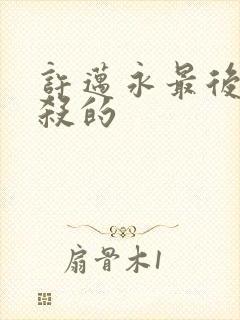 許邁永最後
殺的
扇骨木1